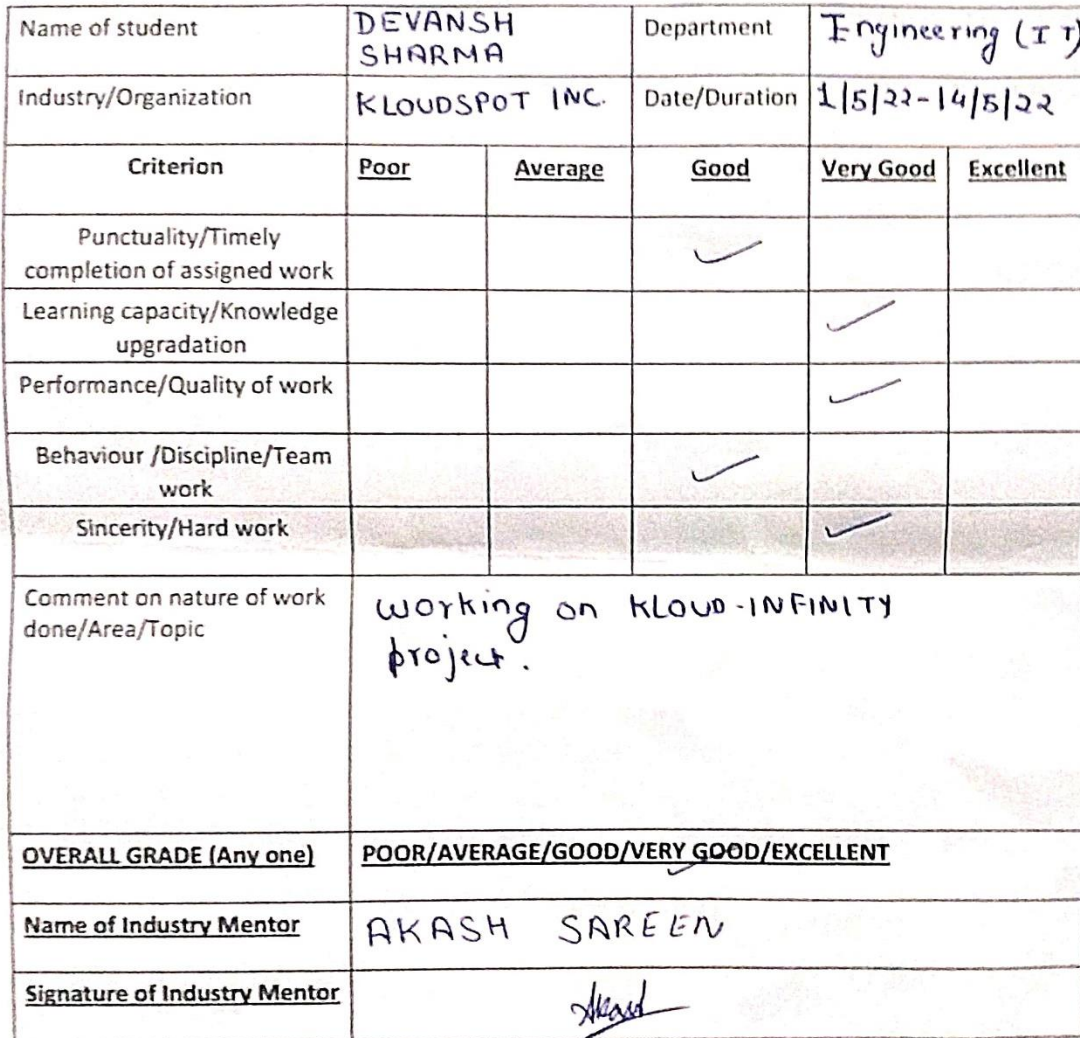 Name of student DEVANSH Department Engineering (IT)
SHARMA
Industry/Organization KLOUDSPOT INC. Date/Duration 1/5/22-14/5/22
Criterion Poor Average Good Very Good Excellent
Punctuality/Timely
completion of assigned work
Learning capacity/Knowledge
upgradation
Performance/Quality of work
Behaviour /Discipline/Team
work
Sincerity/Hard work
Comment on nature of work working on KLOUD-INFINITY
done/Area/Topic project.
OVERALL GRADE (Any one) POOR/AVERAGE/GOOD/VERY GOOD/EXCELLENT
Name of Industry Mentor AKASH SAREEN
Signature of Industry Mentor Akash